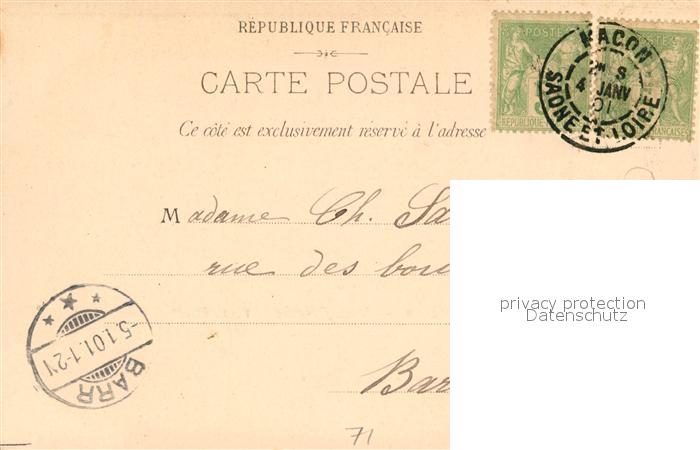 RÉPUBLIQUE FRANÇAISE
CARTE POSTALE
Ce côté est exclusivement réservé à l'adresse
POSTE
RÉPUBLIQUE
FRANÇAISE
MACON
4 JANV
01
SAONE ET LOIRE
Madame Ch. Sa
rue des bou
Bar
-5.1.01.1-2N
BARR
71
privacy protection
Datenschutz